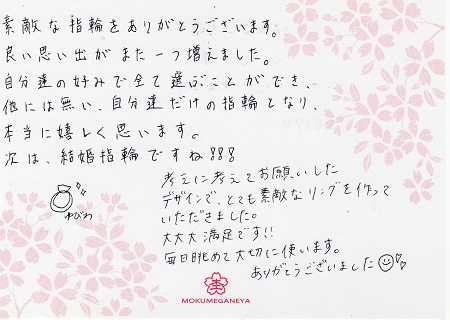 素敵な指輪をありがとうございます。
良い思い出がまた一つ増えました。
自分達の好みで全て選ぶことができ、
他には無い、自分達だけの指輪となり、
本当に嬉しく思います。
次は、結婚指輪ですね!!!
ゆびわ
考えに考えてお願いした
デザインで、とても素敵なリングを作って
いただきました。
大大大満足です!!
毎日眺めて大切に使います。
ありがとうございました
MOKUMEGANEYA